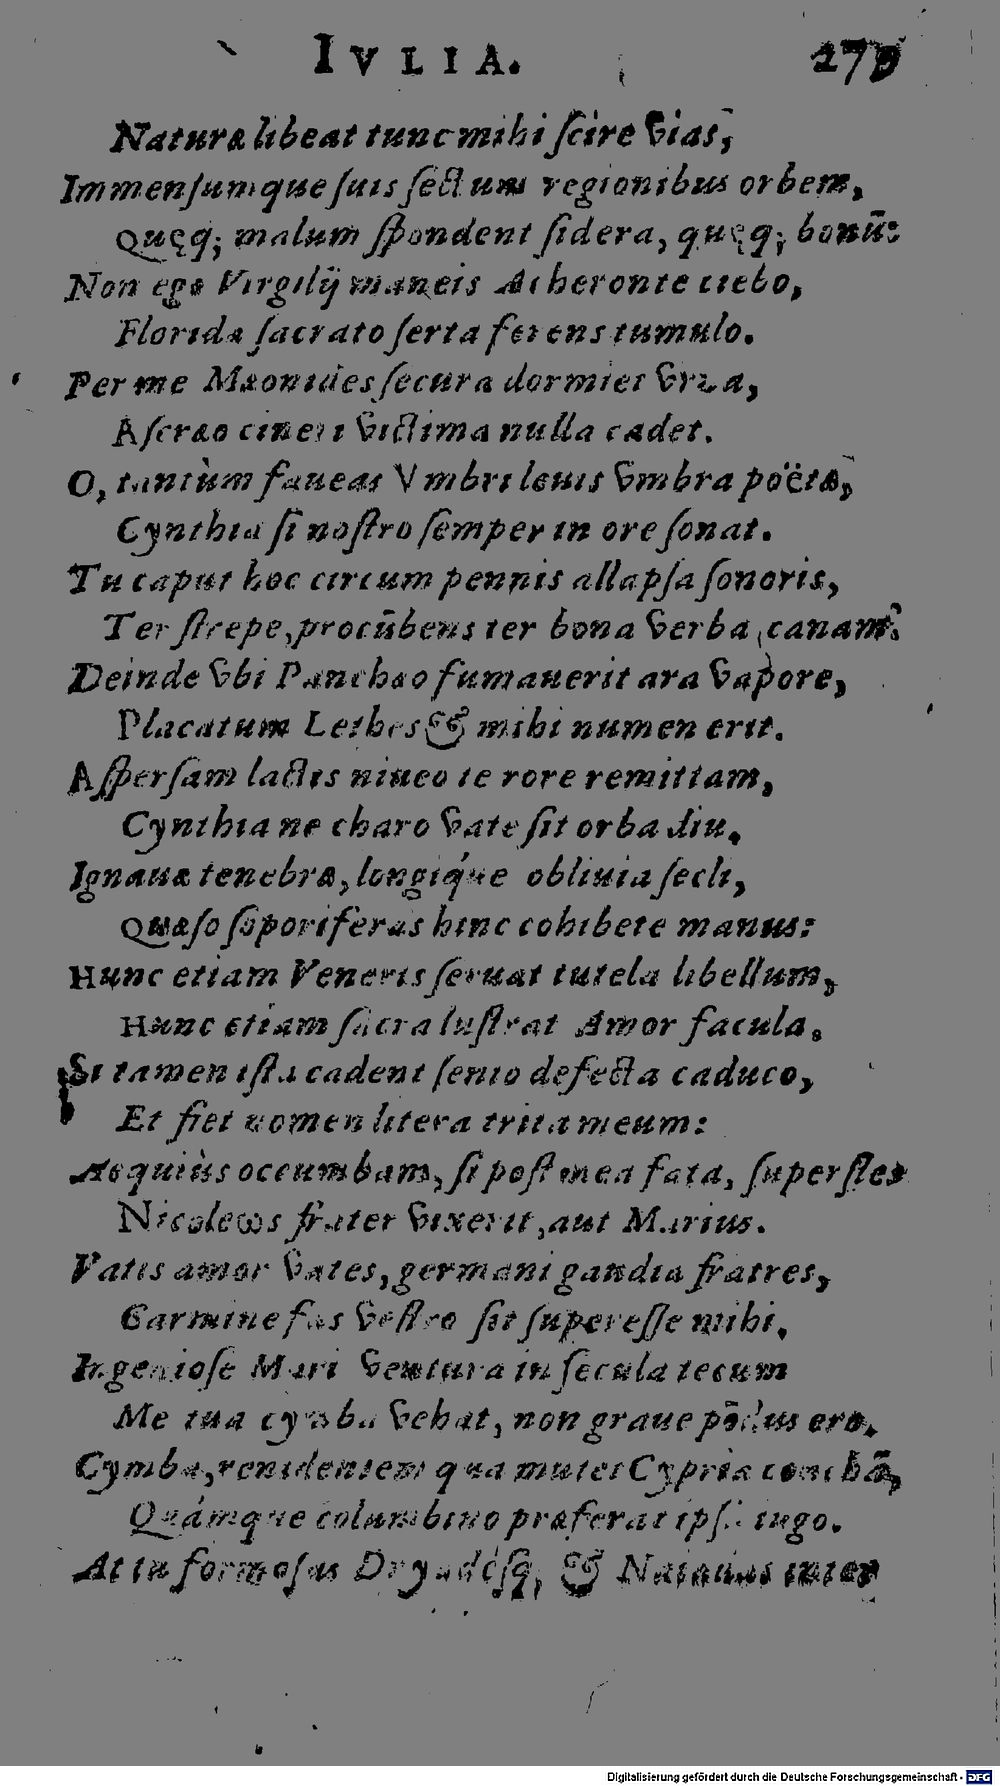 IVLIA. 279
Naturæ libeat tunc mihi ſcire vias,
Immenſumque ſuis ſectum regionibus orbem,
Quęq; malum ſpondent ſidera, quęq; bonū:
Non ego Virgilij maneis Acheronte ciebo,
Florida ſacrato ſerta ferens tumulo.
Per me Mæonides ſecura dormiet vrna,
Aſcræo cineri victima nulla cadet.
O, tantùm faueas Vmbri leuis vmbra poëtæ,
Cynthia ſi noſtro ſemper in ore ſonat.
Tu caput hoc circum pennis allapſa ſonoris,
Ter ſtrepe, procūbens ter bona verba canam.
Deinde vbi Panchæo fumauerit ara vapore,
Placatum Lethes & mihi numen erit.
Aſperſam lactis niueo te rore remittam,
Cynthia ne charo vate ſit orba diu.
Ignauæ tenebræ, longiq́ue obliuia ſecli,
Quæſo ſoporiferas hinc cohibete manus:
Hunc etiam Veneris ſeruat tutela libellum,
Hunc etiam ſacra luſtrat Amor facula.
Si tamen iſta cadent ſenio defecta caduco,
Et fiet nomen litera trita meum:
Aequiùs occumbam, ſi poſt mea fata, ſuperſtes
Nicoleωs frater vixerit, aut Marius.
Vatis amor vates, germani gaudia fratres,
Carmine fas veſtro ſit ſupereſſe mihi.
Ingenioſe Mari ventura in ſecula tecum
Me tua cymba vehat, non graue pōdus ero.
Cymba, renidentem qua mutet Cypria conchā,
Quámque columbino præferat ipſa iugo.
At tu formoſas Dryadéſq; & Naiadas inter
Digitalisierung gefördert durch die Deutsche Forschungsgemeinschaft - DFG